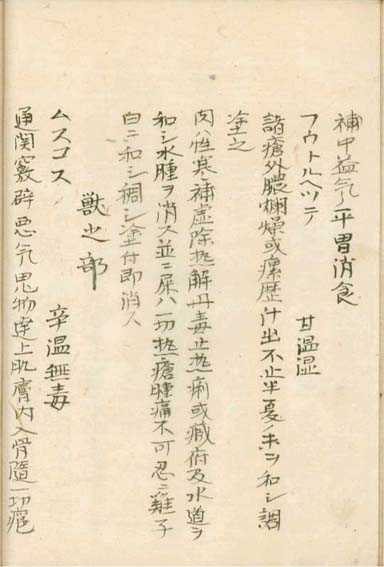 補中益気平胃消食
フウトルヘツテ　甘温湿
諸瘡外膿爛燥或瘰歴汁出不止半夏ノ末ヲ和シ調
塗之
肉ハ性寒補虚除熱解丹毒止熱痢或臓府及水道ヲ
和シ水腫ヲ消ス並ニ屎ハ一切熱瘡腫痛不可忍ニ雞子
白ニ和シ稠シ塗付即消ス
獣之部
ムスコス　辛温無毒
通関竅辟悪気鬼物達上肌膚内入骨随一切瘡